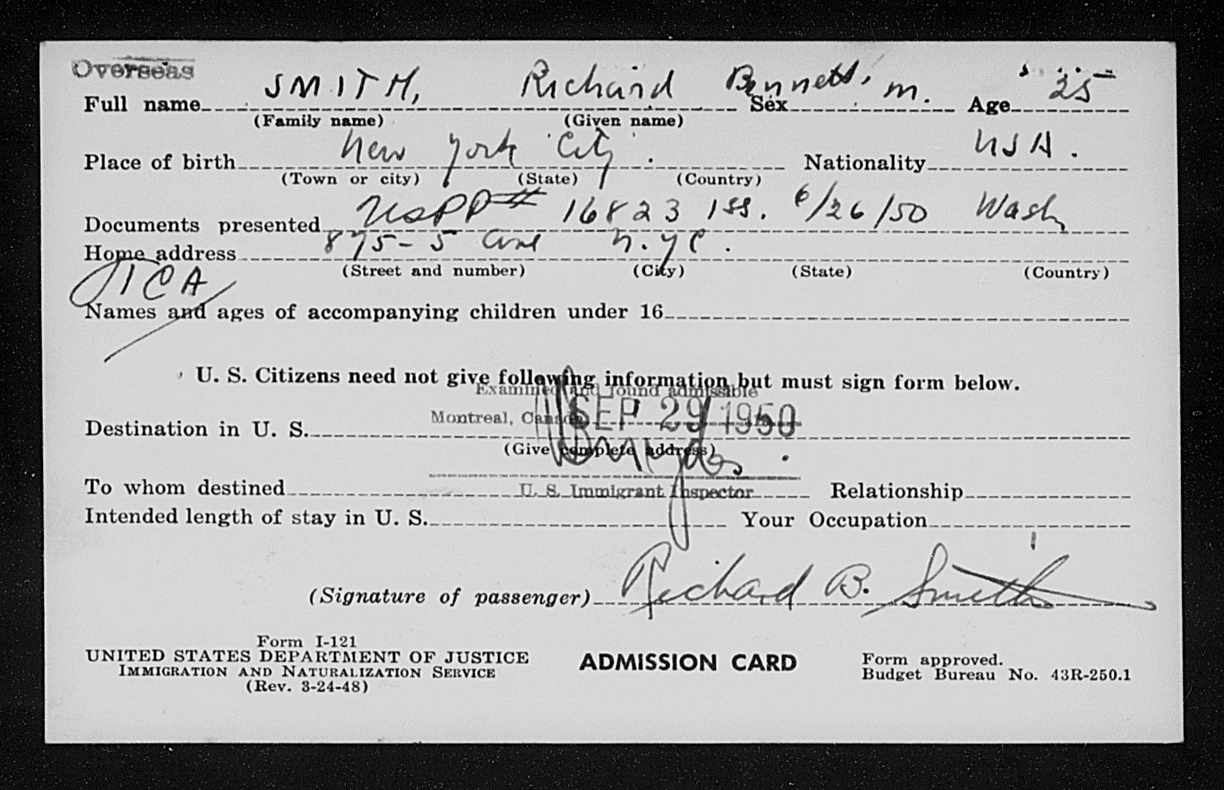 Overseas
Full name SMITH, Richard Bennett Sex m. Age 25
(Family name) (Given name)
Place of birth New York City. Nationality USA.
(Town or city) (State) (Country)
Documents presented USPP# 16823 iss. 6/26/50 Wash
Home address 875-5 Ave N.Y.C.
(Street and number) (City) (State) (Country)
TCA
Names and ages of accompanying children under 16
U. S. Citizens need not give following information but must sign form below.
Examined and found admissible
Montreal, Canada SEP 29 1950
Destination in U. S.
(Give complete address)
To whom destined U. S. Immigrant Inspector Relationship
Intended length of stay in U. S. Your Occupation
(Signature of passenger) Richard B. Smith
Form I-121
UNITED STATES DEPARTMENT OF JUSTICE ADMISSION CARD Form approved.
IMMIGRATION AND NATURALIZATION SERVICE Budget Bureau No. 43R-250.1
(Rev. 3-24-48)